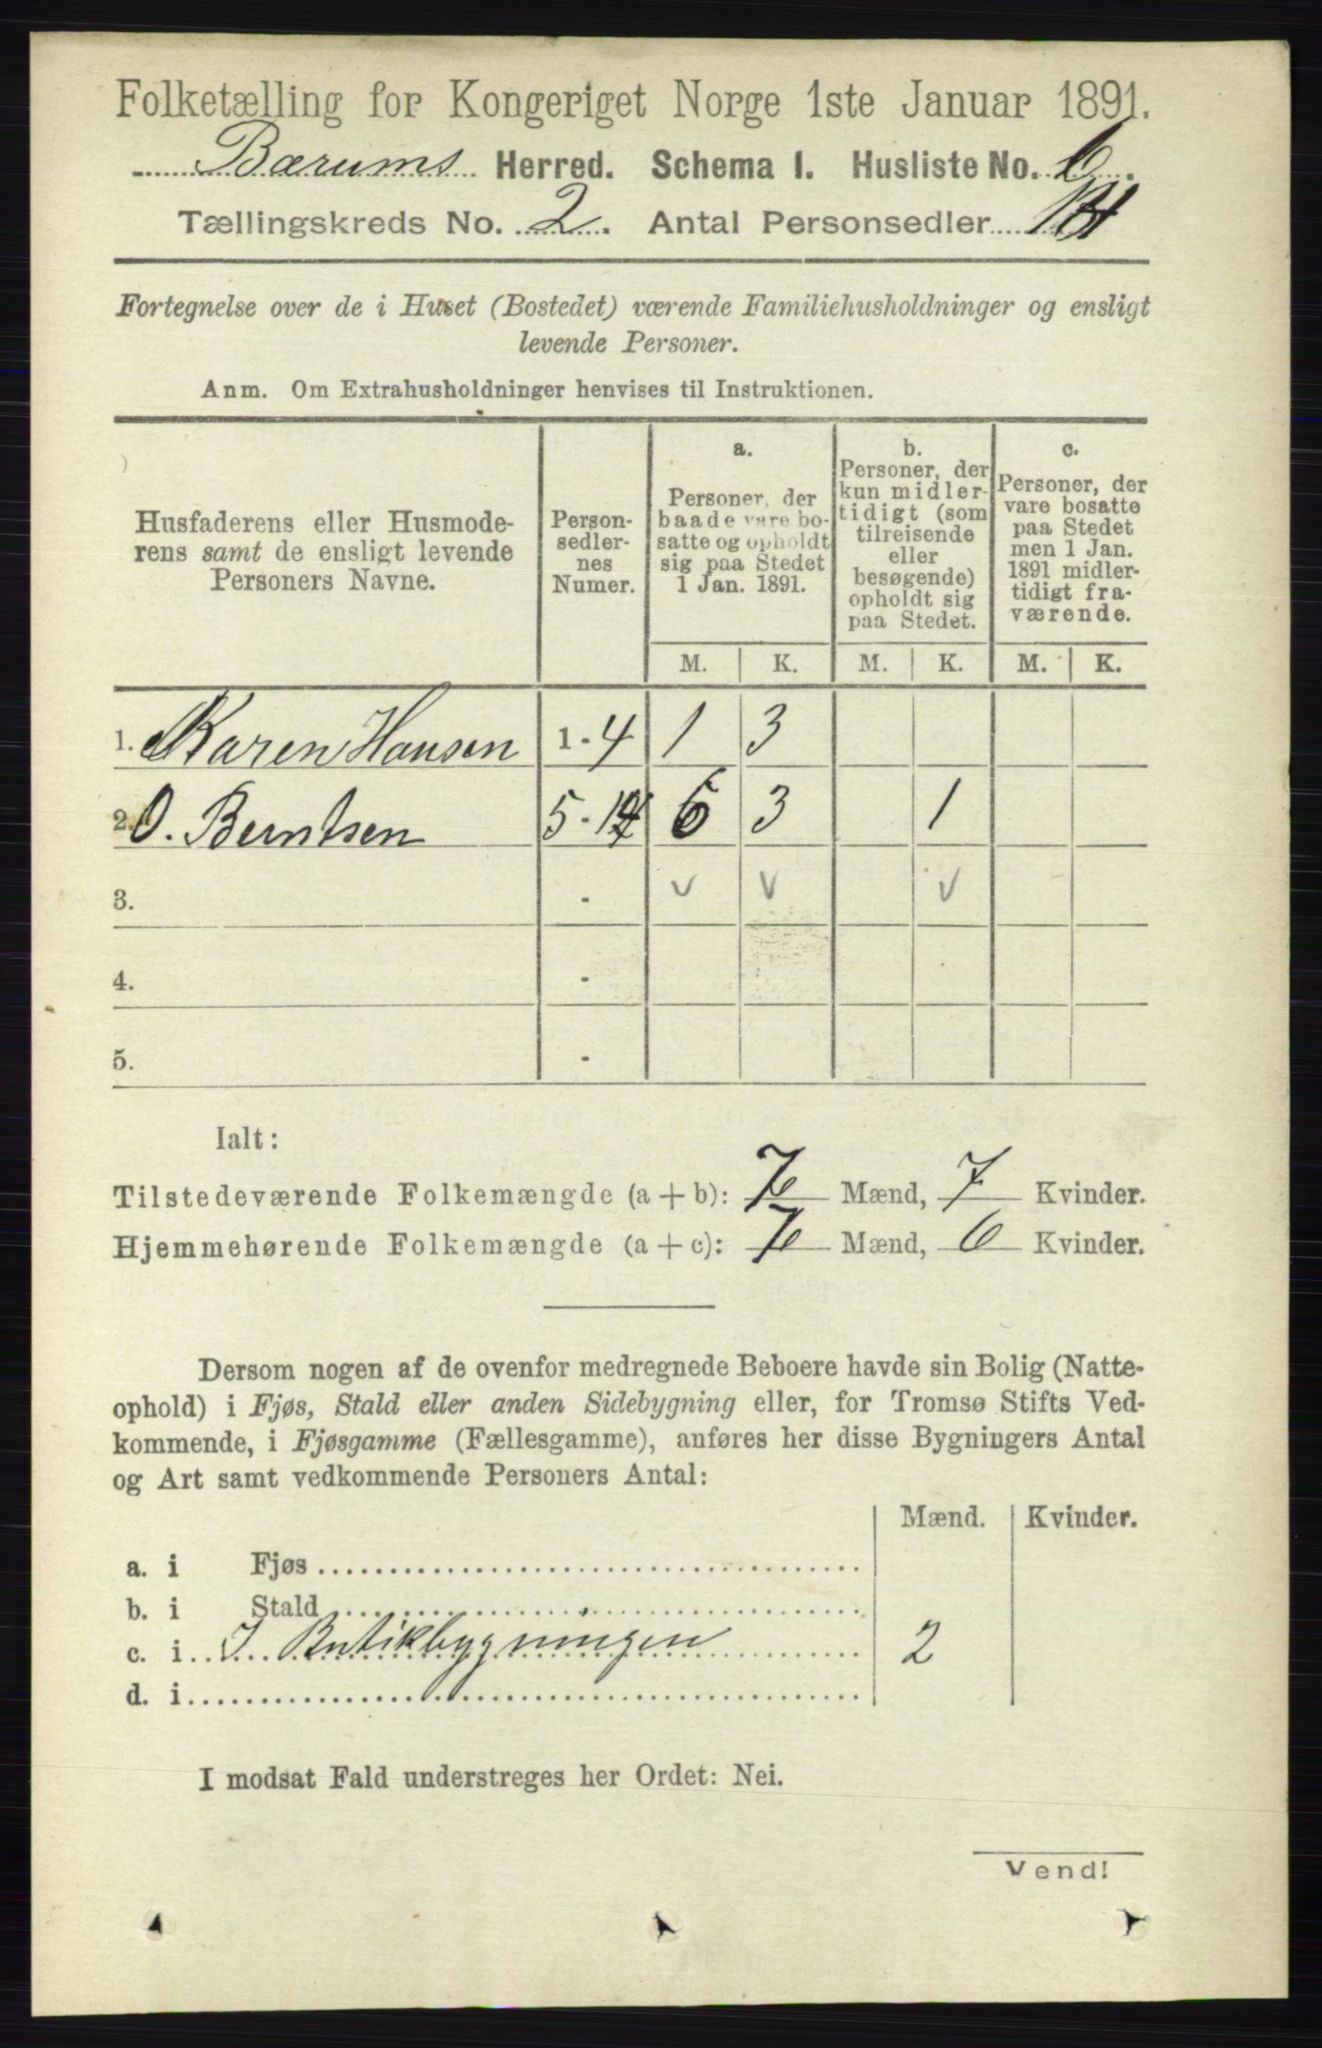 Folketælling for Kongeriget Norge 1ste Januar 1891.
Bærums Herred. Schema I. Husliste No. 6.
Tællingskreds No. 2. Antal Personsedler 14
Fortegnelse over de i Huset (Bostedet) værende Familiehusholdninger og ensligt
levende Personer.
Anm. Om Extrahusholdninger henvises til Instruktionen.
Husfaderens eller Husmode-
rens samt de ensligt levende
Personers Navne.
Person-
sedler-
nes
Numer.
a.
Personer, der
baade vare bo-
satte og opholdt
sig paa Stedet
1 Jan. 1891.
b.
Personer, der
kun midler-
tidigt (som
tilreisende
eller
besøgende)
opholdt sig
paa Stedet.
c.
Personer, der
vare bosatte
paa Stedet
men 1 Jan.
1891 midler-
tidigt fra-
værende.
M. K. M. K. M. K.
1. Karen Hansen 1 - 4 1 3
2. O. Berntsen 5 - 14 6 3 1
3. - v v v
4. -
5. -
Ialt:
Tilstedeværende Folkemængde (a + b): 7 Mænd, 7 Kvinder.
Hjemmehørende Folkemængde (a + c): 7 Mænd, 6 Kvinder.
Dersom nogen af de ovenfor medregnede Beboere havde sin Bolig (Natte-
ophold) i Fjøs, Stald eller anden Sidebygning eller, for Tromsø Stifts Ved-
kommende, i Fjøsgamme (Fællesgamme), anføres her disse Bygningers Antal
og Art samt vedkommende Personers Antal:
Mænd. Kvinder.
a. i Fjøs
b. i Stald
c. i I Butikbygningen 2
d. i
I modsat Fald understreges her Ordet: Nei.
Vend!